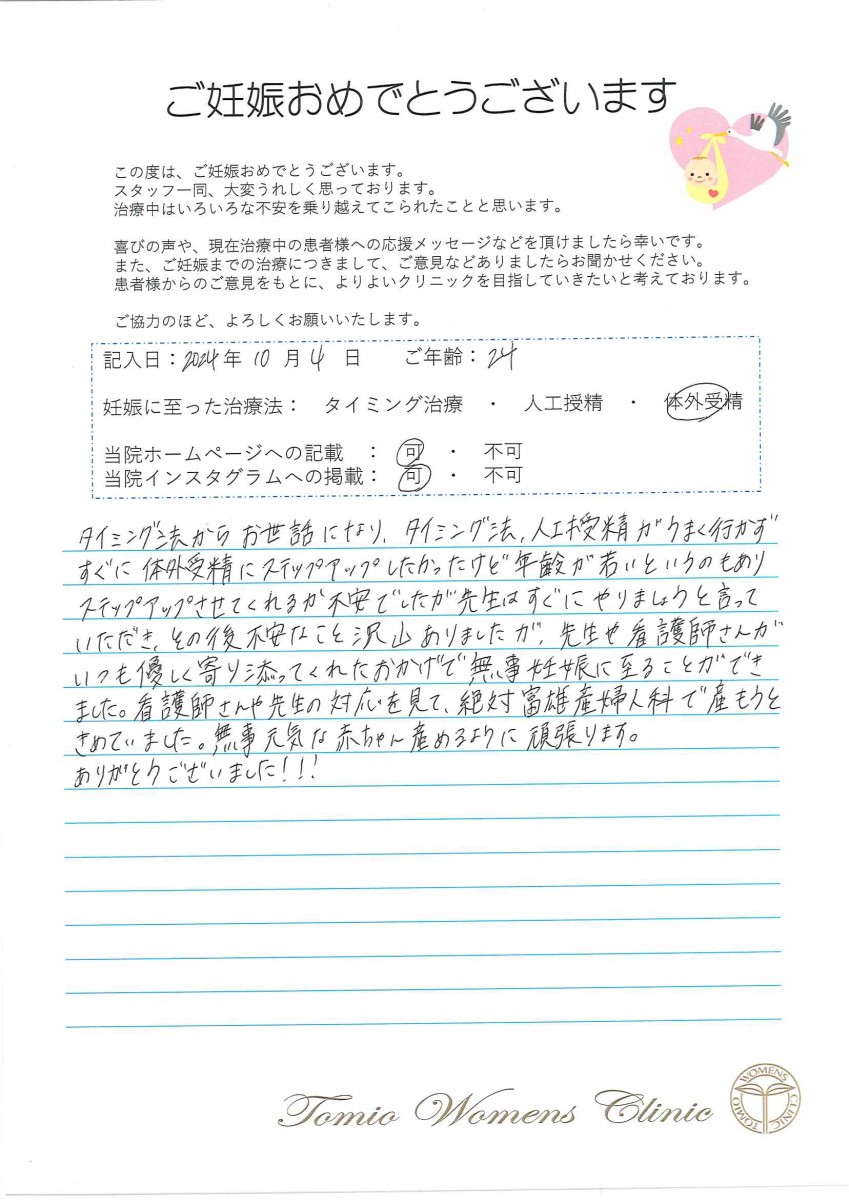 ご妊娠おめでとうございます
この度は、ご妊娠おめでとうございます。
スタッフ一同、大変うれしく思っております。
治療中はいろいろな不安を乗り越えてこられたことと思います。
喜びの声や、現在治療中の患者様への応援メッセージなどを頂けましたら幸いです。
また、ご妊娠までの治療につきまして、ご意見などありましたらお聞かせください。
患者様からのご意見をもとに、よりよいクリニックを目指していきたいと考えております。
ご協力のほど、よろしくお願いいたします。
記入日：2024年 10 月 4 日 ご年齢：24
妊娠に至った治療法： タイミング治療 ・ 人工授精 ・ 体外受精
当院ホームページへの記載 ： 可 ・ 不可
当院インスタグラムへの掲載： 可 ・ 不可
タイミング法から お世話になり、タイミング法、人工授精がうまく行かず
すぐに 体外受精にステップアップしたかったけど 年齢が若いというのもあり
ステップアップさせてくれるか不安でしたが先生はすぐにやりましょうと言って
いただき、その後不安なこと沢山ありましたが、先生や看護師さんが
いつも優しく寄り添ってくれたおかげで無事妊娠に至ることができ
ました。看護師さんや先生の対応を見て、絶対富雄産婦人科で産もうと
きめていました。無事元気な赤ちゃん産めるように頑張ります。
ありがとうございました！！！
Tomio Womens Clinic
WOMENS CLINIC TOMIO